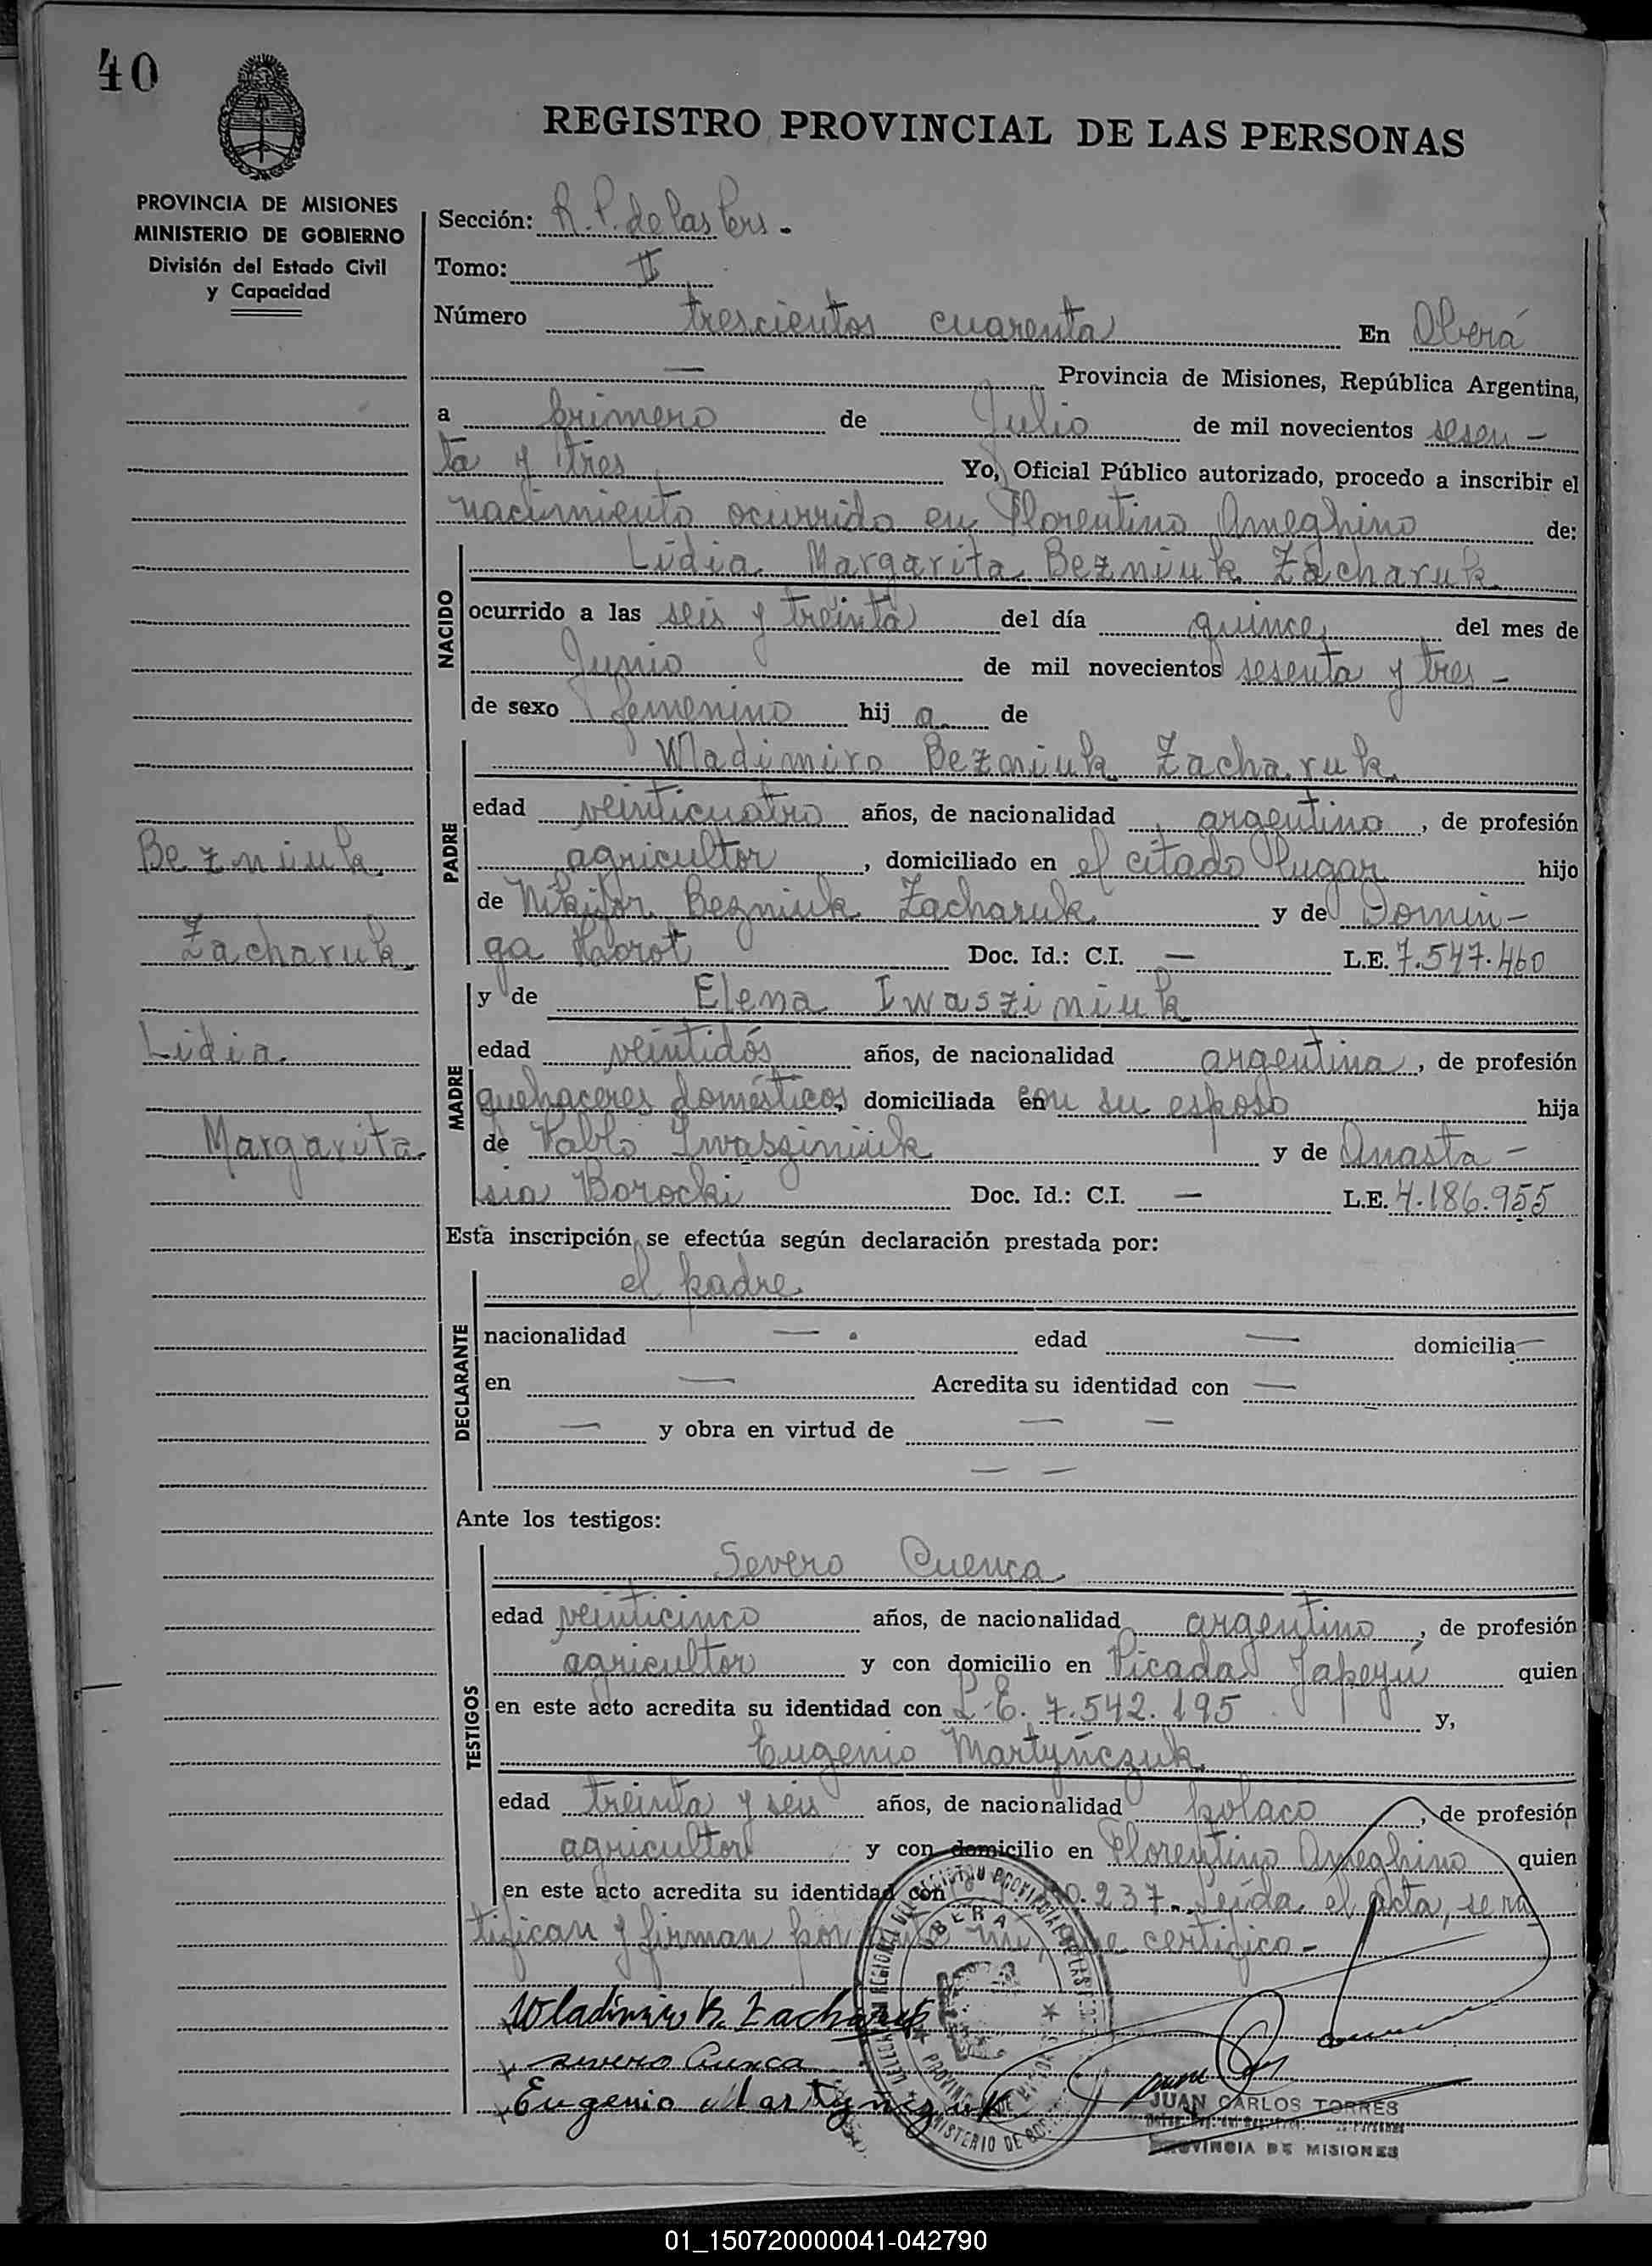 40
REGISTRO PROVINCIAL DE LAS PERSONAS
PROVINCIA DE MISIONES
MINISTERIO DE GOBIERNO
División del Estado Civil
y Capacidad
Sección: R. P. de las Pers.
Tomo: II
Número trescientos cuarenta En Oberá
— Provincia de Misiones, República Argentina,
a primero de Julio de mil novecientos sesen-
ta y tres Yo, Oficial Público autorizado, procedo a inscribir el
nacimiento ocurrido en Florentino Ameghino de:
NACIDO
Lidia Margarita Bezniuk Zacharuk
ocurrido a las seis y treinta del día quince del mes de
Junio de mil novecientos sesenta y tres -
de sexo femenino hija de
PADRE
Wladimiro Bezniuk Zacharuk
edad veinticuatro años, de nacionalidad argentino, de profesión
agricultor, domiciliado en el citado lugar hijo
de Nikifor Bezniuk Zacharuk y de Domin-
ga Horot Doc. Id.: C.I. — L.E. 7.547.460
Bezniuk
Zacharuk
Lidia
Margarita
MADRE
y de Elena Iwasziniuk
edad veintidós años, de nacionalidad argentina, de profesión
quehaceres domésticos, domiciliada con su esposo hija
de Pablo Iwasziniuk y de Anasta-
sia Borocki Doc. Id.: C.I. — L.E. 4.186.955
Esta inscripción se efectúa según declaración prestada por:
DECLARANTE
el padre
nacionalidad — edad — domicilia —
en — Acredita su identidad con —
— y obra en virtud de — —
— —
Ante los testigos:
TESTIGOS
Severo Cuenca
edad veinticinco años, de nacionalidad argentino, de profesión
agricultor y con domicilio en Picada Japeyú quien
en este acto acredita su identidad con L.E. 7.542.195 y,
Eugenio Martyńczuk
edad treinta y seis años, de nacionalidad polaco, de profesión
agricultor y con domicilio en Florentino Ameghino quien
en este acto acredita su identidad con 0.237. Leída el acta, se ra
tifican y firman por ante mi, que certifico -
Wladimiro B. Zacharuk
severo Cuenca
Eugenio Martyńczuk
OBERA
JUAN CARLOS TORRES
PROVINCIA DE MISIONES
01_150720000041-042790